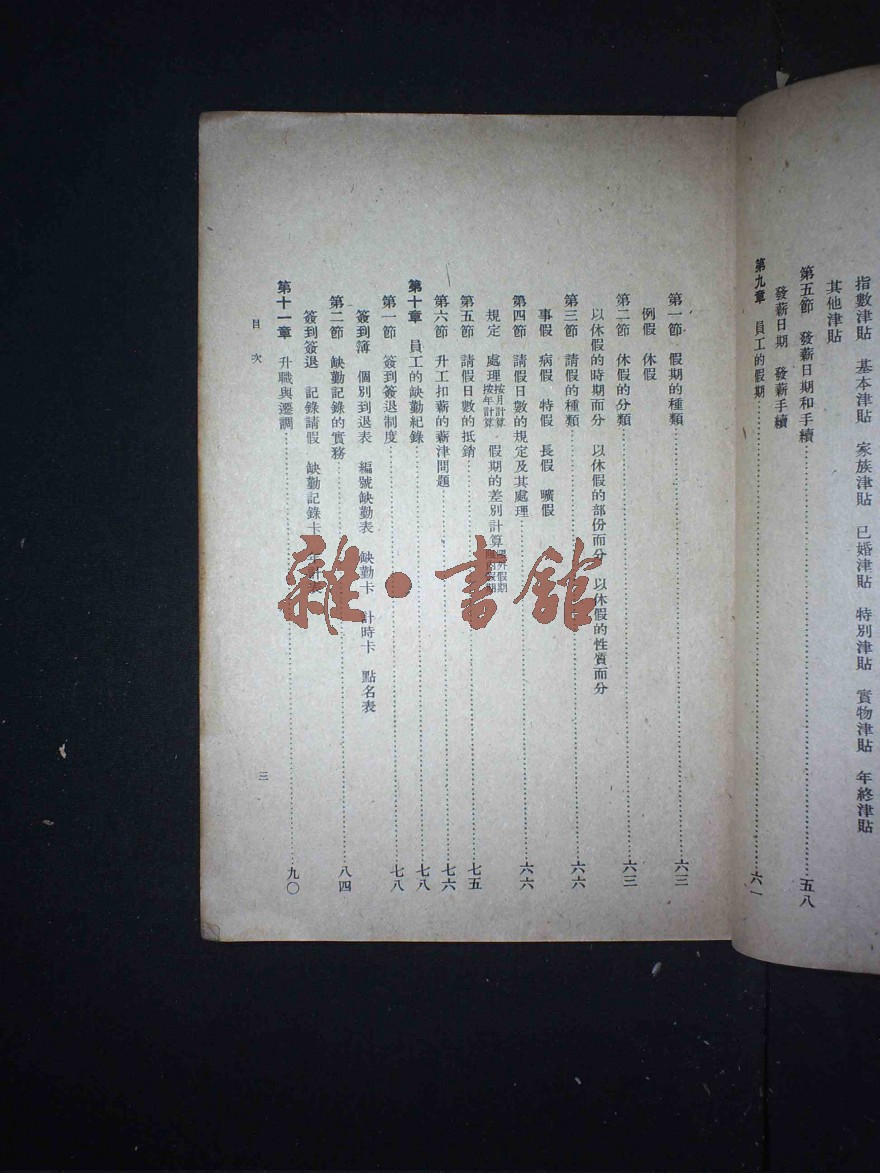 指數津貼　基本津貼　家族津貼　已婚津貼　特別津貼　實物津貼　年終津貼
其他津貼
第五節　發薪日期和手續……五八
發薪日期　發薪手續
第九章　員工的假期……六一
第一節　假期的種類……六三
例假　休假
第二節　休假的分類……六三
以休假的時期而分　以休假的部份而分　以休假的性質而分
第三節　請假的種類……六六
事假　病假　特假　長假　曠假
第四節　請假日數的規定及其處理……六六
規定　處理按月計算按年計算　假期的差別計算國外假期
第五節　請假日數的抵銷……七五
第六節　升工扣薪的薪津問題……七六
第十章　員工的缺勤紀錄……七八
第一節　簽到簽退制度……七八
簽到簿　個別到退表　編號缺勤表　缺勤卡　計時卡　點名表
第二節　缺勤記錄的實務……八四
簽到簽退　記錄請假　缺勤記錄卡
第十一章　升職與遷調……九〇
目次
三
雜·書館